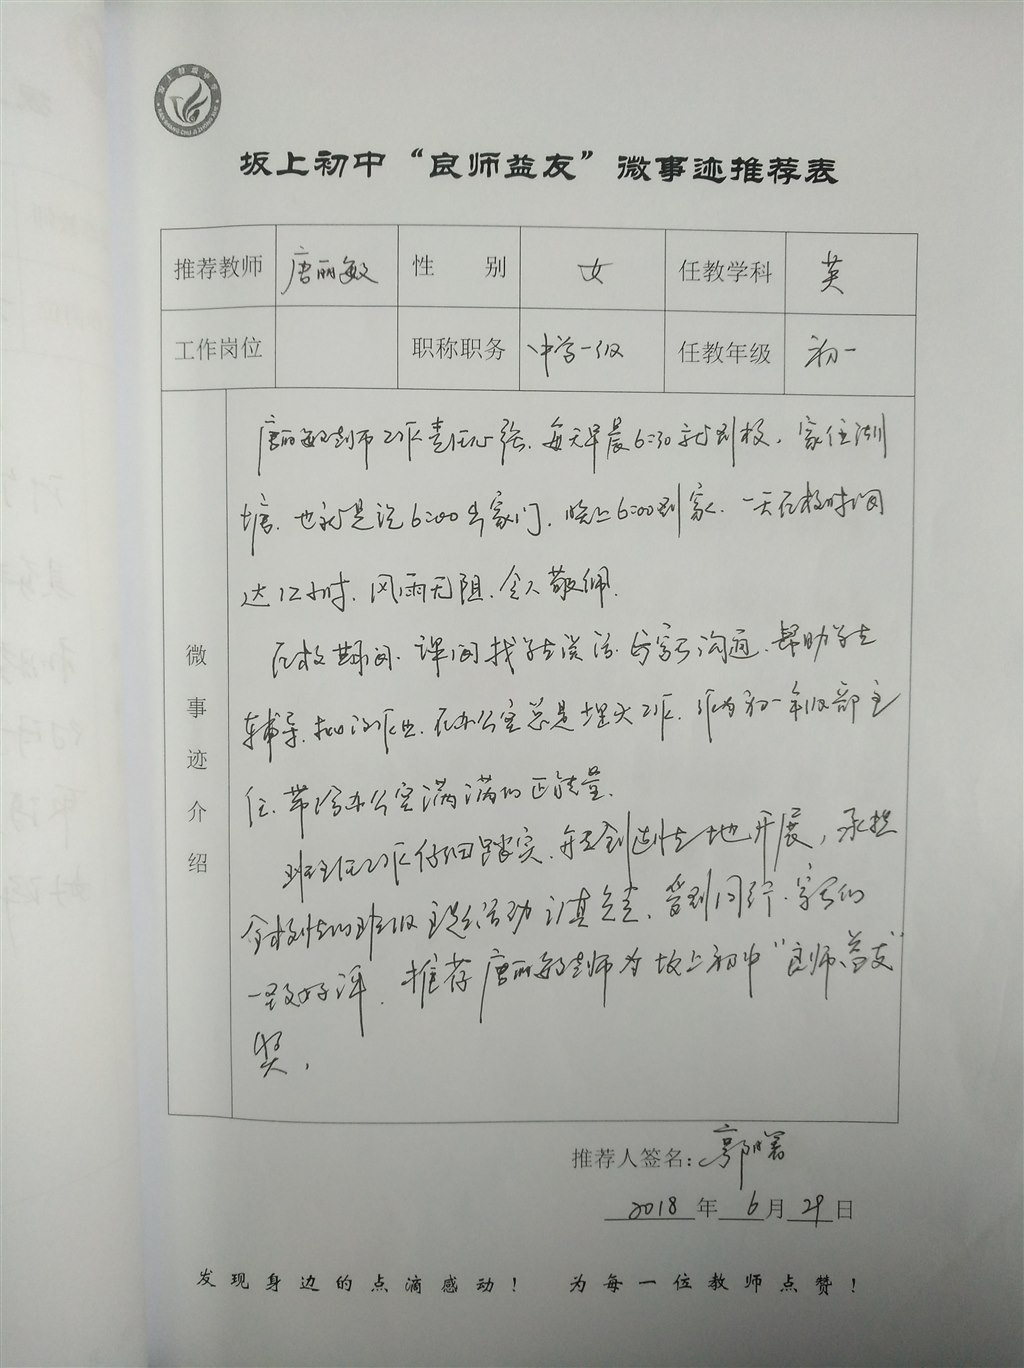 坂上初中“良师益友”微事迹推荐表
推荐教师 唐丽敏 性 别 女 任教学科 英
工作岗位 职称职务 中学一级 任教年级 初一
微事迹介绍
唐丽敏老师工作责任心强。每天早晨6:30就到校，家住湖
塘，也就是说6:00出家门，晚上6:00到家，一天在校时间
达12小时，风雨无阻，令人敬佩。
在校期间，课间找学生谈话，与家长沟通，帮助学生
辅导，批改作业，在办公室总是埋头工作，作为初一年级部主
任，带给办公室满满的正能量。
班主任工作仔细踏实，并创造性地开展，承担
全校性的班级主题活动认真负责，受到同行、家长的
一致好评，推荐唐丽敏老师为坂上初中“良师益友”
奖。
推荐人签名：郭
2018年6月29日
发现身边的点滴感动！ 为每一位教师点赞！